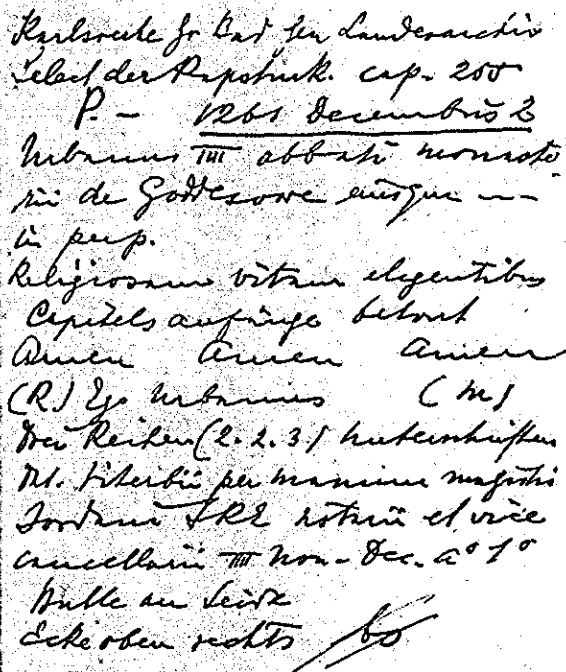 Karlsruhe Gr Bad Gen Landesarchiv
Select der Papsturk. cap. 200
P. — 1261 Decembris 2
Urbanus IIII abbati monaste
rii de Gottesowe eiusque ---
in perp.
Religiosam vitam eligentibus
Capitels anfänge betont
Amen Amen Amen
(R.) Ego Urbanus (M)
Drei Reihen (2. 2. 3) Unterschriften
Dt. Viterbii per manum magistri
Jordani SRE notarii et vice
cancellarii IIII Non. Dec. a° 1°
Bulle an Seide
Ecke oben rechts